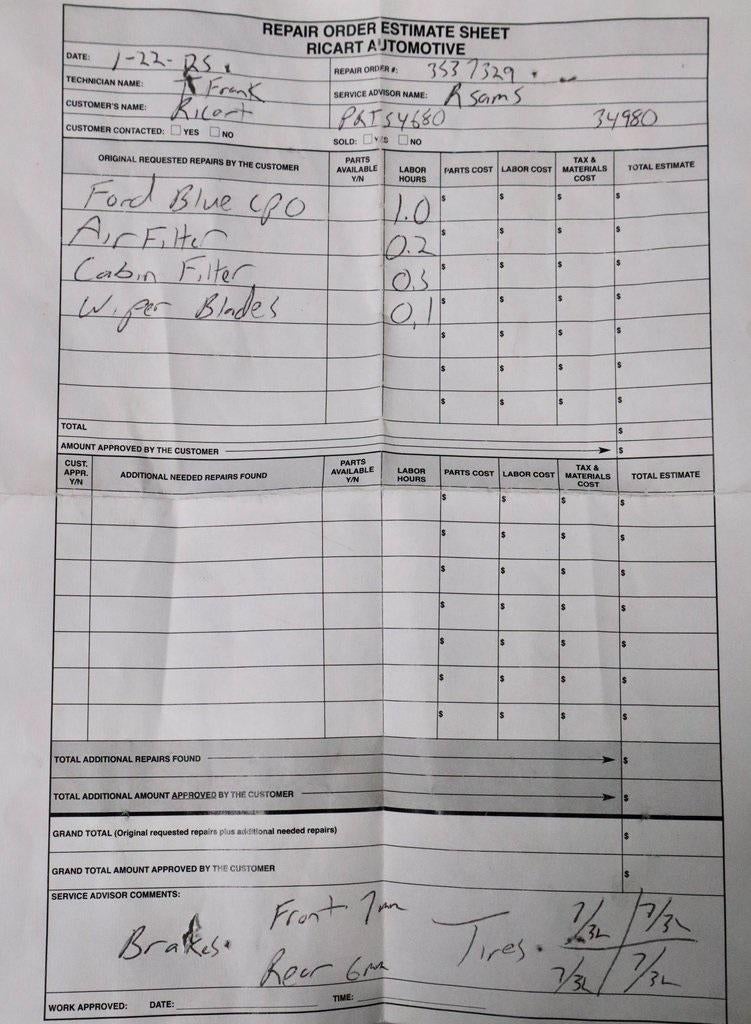 REPAIR ORDER ESTIMATE SHEET
RICART AUTOMOTIVE
DATE: 1-22-25
REPAIR ORDER #: 3537329
TECHNICIAN NAME: T Frank
SERVICE ADVISOR NAME: R sams
CUSTOMER'S NAME: Ricart
PRTS4680 34980
CUSTOMER CONTACTED: YES NO
SOLD: YES NO
ORIGINAL REQUESTED REPAIRS BY THE CUSTOMER PARTS AVAILABLE Y/N LABOR HOURS PARTS COST LABOR COST TAX & MATERIALS COST TOTAL ESTIMATE
Ford Blue CPO 1.0 $ $ $ $
Air Filter 0.2 $ $ $ $
Cabin Filter 0.3 $ $ $ $
Wiper Blades 0.1 $ $ $ $
$ $ $ $
$ $ $ $
$ $ $ $
TOTAL $
AMOUNT APPROVED BY THE CUSTOMER $
CUST. APPR. Y/N ADDITIONAL NEEDED REPAIRS FOUND PARTS AVAILABLE Y/N LABOR HOURS PARTS COST LABOR COST TAX & MATERIALS COST TOTAL ESTIMATE
$ $ $ $
$ $ $ $
$ $ $ $
$ $ $ $
$ $ $ $
$ $ $ $
$ $ $ $
TOTAL ADDITIONAL REPAIRS FOUND $
TOTAL ADDITIONAL AMOUNT APPROVED BY THE CUSTOMER $
GRAND TOTAL (Original requested repairs plus additional needed repairs) $
GRAND TOTAL AMOUNT APPROVED BY THE CUSTOMER $
SERVICE ADVISOR COMMENTS:
Brakes. Front 7mm Tires. 7/32 7/32
Rear 6mm 7/32 7/32
WORK APPROVED: DATE: TIME: